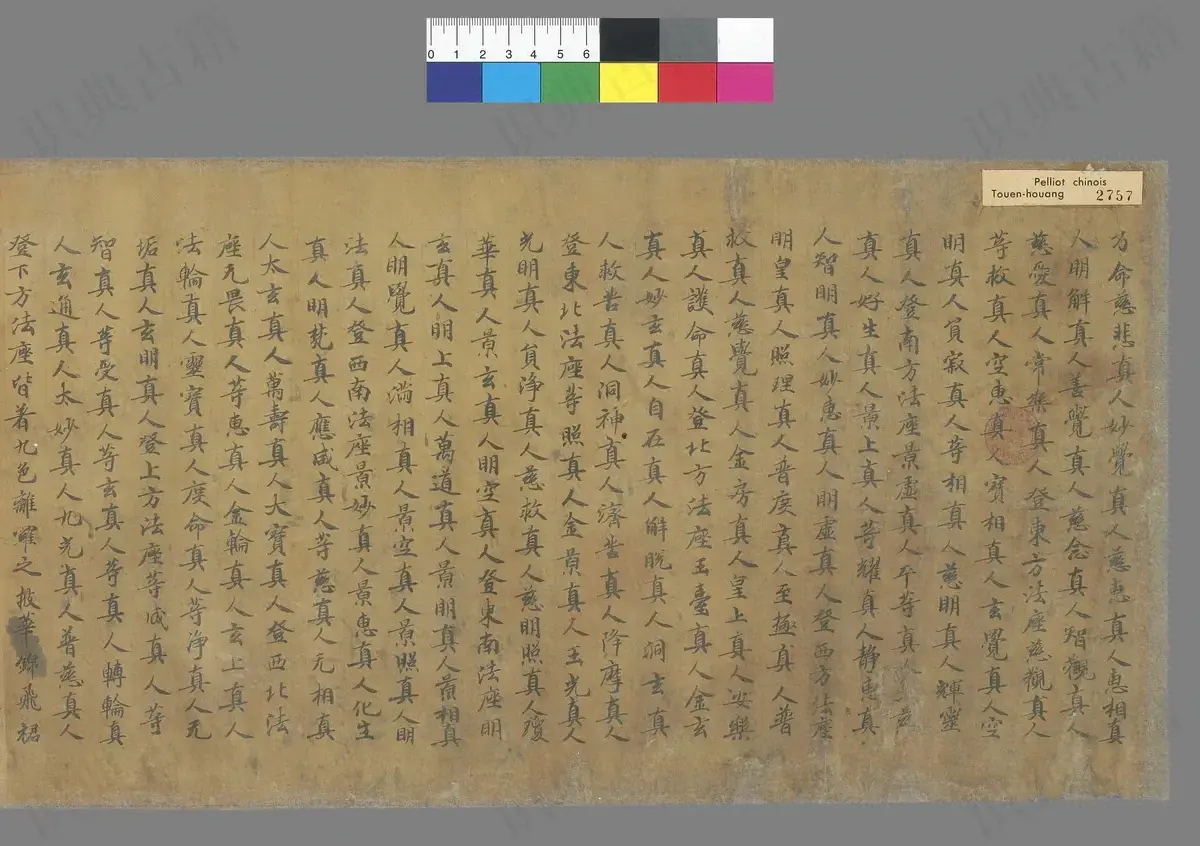 Pelliot chinois
Touen-houang 2757
0 1 2 3 4 5 6
方命慈悲真人妙覺真人慈惠真人惠相真
人明解真人善覺真人慈念真人智觀真人
慈愛真人常樂真人登東方法座慈觀真人
等救真人空惠真人寶相真人玄覺真人空
明真人員寂真人等相真人慈明真人輝靈
真人登南方法座景虛真人平等真人
真人好生真人景上真人等耀真人靜惠真
人智明真人妙惠真人明虛真人登西方法座
明皇真人照理真人普度真人至極真人普
救真人慈覺真人金房真人皇上真人安樂
真人護命真人登北方法座玉臺真人金玄
真人妙玄真人自在真人解脫真人洞玄真
人救苦真人洞神真人濟苦真人降摩真人
登東北法座等照真人金景真人玉光真人
光明真人員淨真人慈救真人慈明照真人瓊
華真人景玄真人明空真人登東南法座明
玄真人明上真人萬道真人景明真人景相真
人明覺真人滿相真人景空真人景照真人明
法真人登西南法座景妙真人景惠真人化生
真人明梵真人應感真人等慈真人无相真
人太玄真人萬壽真人大寶真人登西北法
座无畏真人等惠真人金輪真人玄上真人
法輪真人靈寶真人度命真人等淨真人无
垢真人玄明真人登上方法座等成真人等
智真人等受真人等玄真人等真人轉輪真
人玄通真人太妙真人九光真人普慈真人
登下方法座皆著九色離羅之披華錦飛裙
识典古籍